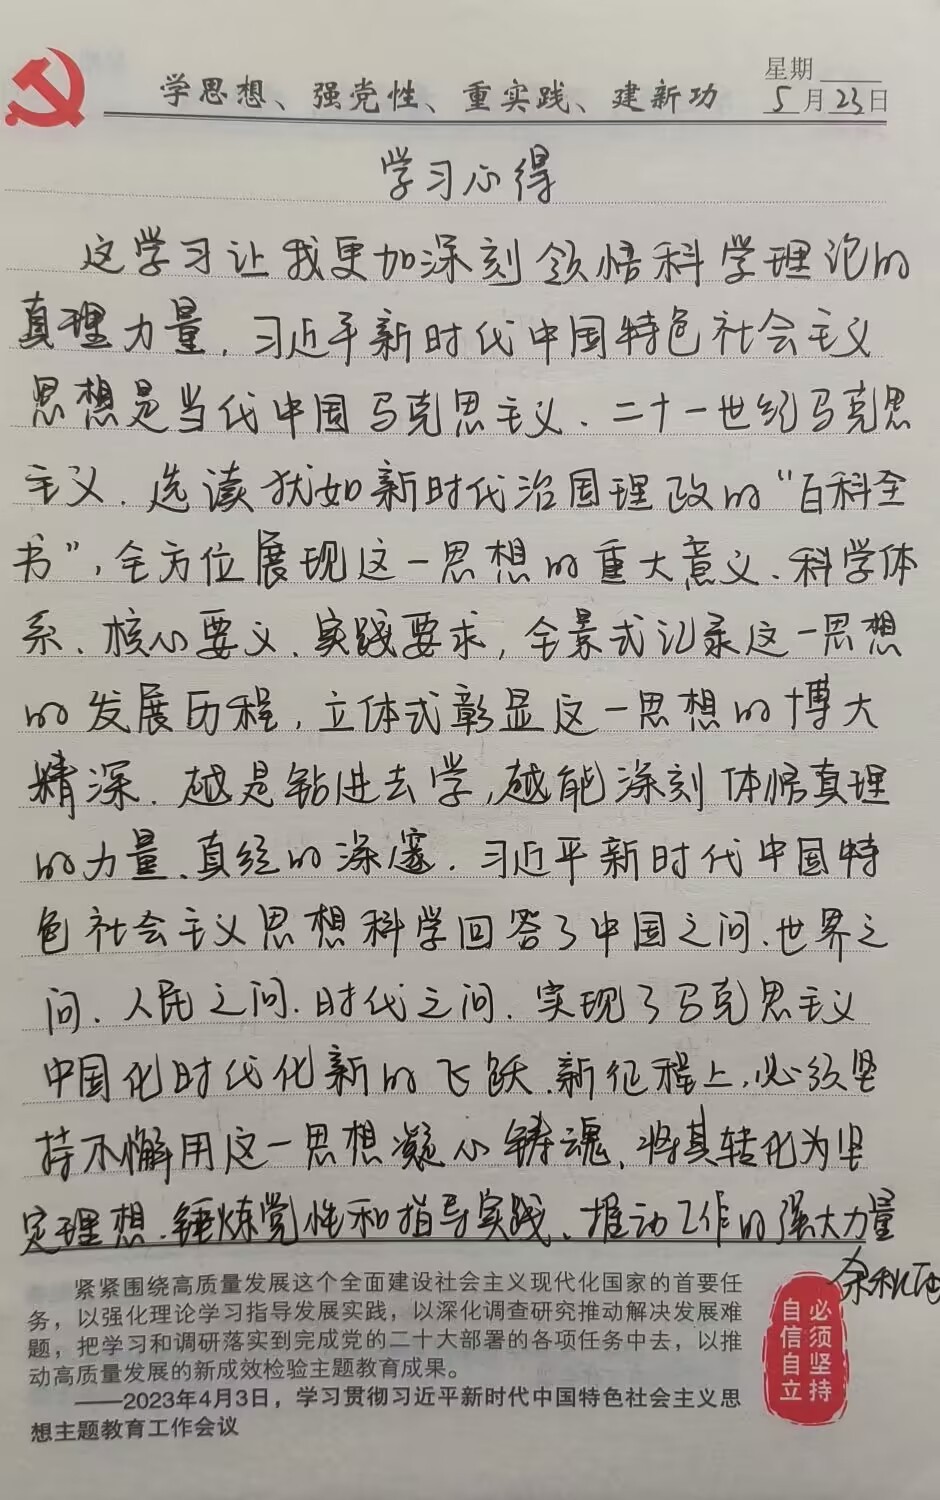 学思想、强党性、重实践、建新功
星期
5月23日
学习心得
这学习让我更加深刻领悟科学理论的
真理力量，习近平新时代中国特色社会主义
思想是当代中国马克思主义、二十一世纪马克思
主义，选读犹如新时代治国理政的“百科全
书”，全方位展现这一思想的重大意义、科学体
系、核心要义、实践要求，全景式记录这一思想
的发展历程，立体式彰显这一思想的博大
精深．越是钻进去学，越能深刻体悟真理
的力量、真经的深邃．习近平新时代中国特
色社会主义思想科学回答了中国之问、世界之
问、人民之问、时代之问，实现了马克思主义
中国化时代化新的飞跃．新征程上，必须坚
持不懈用这一思想凝心铸魂，将其转化为坚
定理想、锤炼党性和指导实践、推动工作的强大力量
紧紧围绕高质量发展这个全面建设社会主义现代化国家的首要任
务，以强化理论学习指导发展实践，以深化调查研究推动解决发展难
题，把学习和调研落实到完成党的二十大部署的各项任务中去，以推
动高质量发展的新成效检验主题教育成果。
——2023年4月3日，学习贯彻习近平新时代中国特色社会主义思
想主题教育工作会议
必须坚持
自信自立